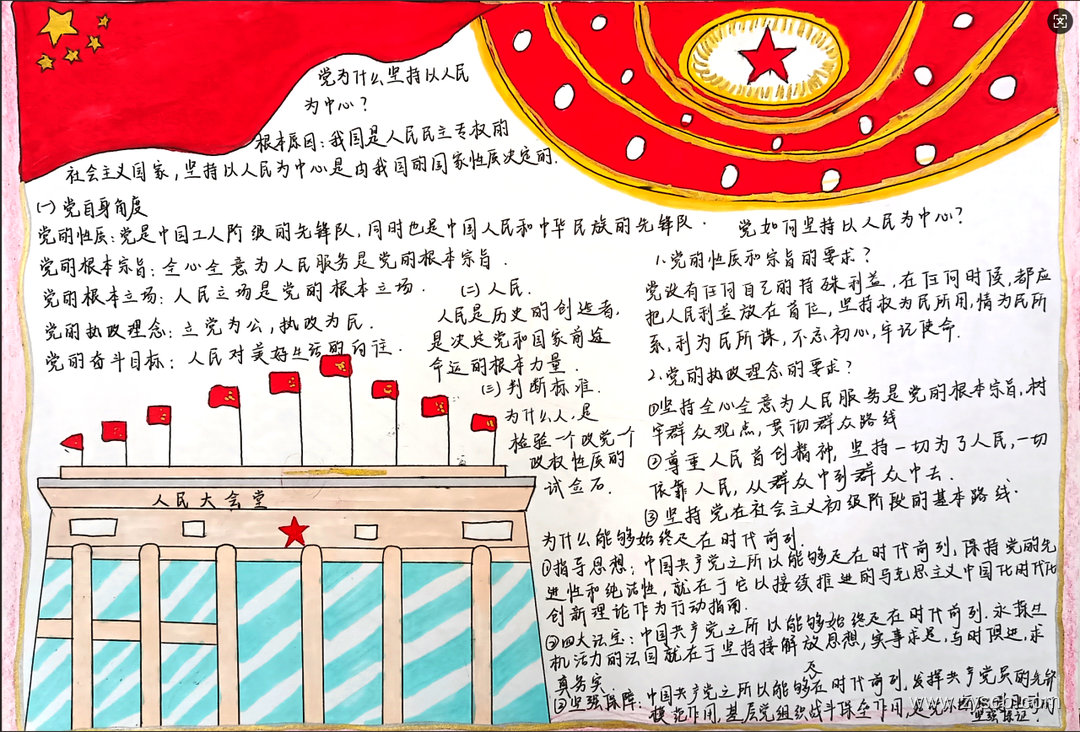 党为什么坚持以人民
为中心？
根本原因：我国是人民民主专权的
社会主义国家，坚持以人民为中心是由我国的国家性质决定的.
(一) 党自身角度
党的性质：党是中国工人阶级的先锋队，同时也是中国人民和中华民族的先锋队.
党的根本宗旨：全心全意为人民服务是党的根本宗旨.
党的根本立场：人民立场是党的根本立场.
党的执政理念：立党为公，执政为民.
党的奋斗目标：人民对美好生活的向往.
(二) 人民.
人民是历史的创造者，
是决定党和国家前途
命运的根本力量.
(三) 判断标准.
为什么人，是
检验一个政党一个
政权性质的
试金石.
党如何坚持以人民为中心？
1.党的性质和宗旨的要求？
党没有任何自己的特殊利益，在任何时候，都应
把人民利益放在首位，坚持权为民所用，情为民所
系，利为民所谋，不忘初心，牢记使命.
2.党的执政理念的要求？
①坚持全心全意为人民服务是党的根本宗旨，树
牢群众观点，贯彻群众路线
②尊重人民首创精神，坚持一切为了人民，一切
依靠人民，从群众中到群众中去.
③坚持党在社会主义初级阶段的基本路线.
为什么能够始终走在时代前列.
①指导思想：中国共产党之所以能够走在时代前列，保持党的先
进性和纯洁性，就在于它以接续推进的马克思主义中国化时代化
创新理论作为行动指南.
②四大法宝：中国共产党之所以能够始终走在时代前列.永葆生
机活力的法国就在于坚持接解放思想，实事求是，与时俱进，求
真务实.
③坚强保障：中国共产党之所以能够走在时代前列，发挥共产党员的先锋
模范作用，基层党组织战斗保垒作用，是
坚强保证.
人民大会堂